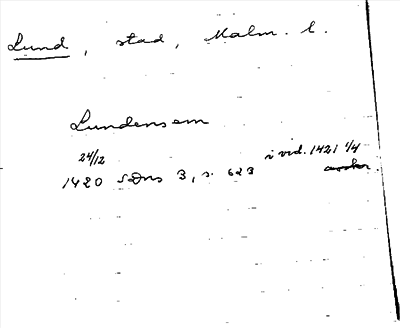 Lund, stad, Malm. l.
Lundensem
24/12 i vid. 1421 1/4
1420 SDns 3, s. 623